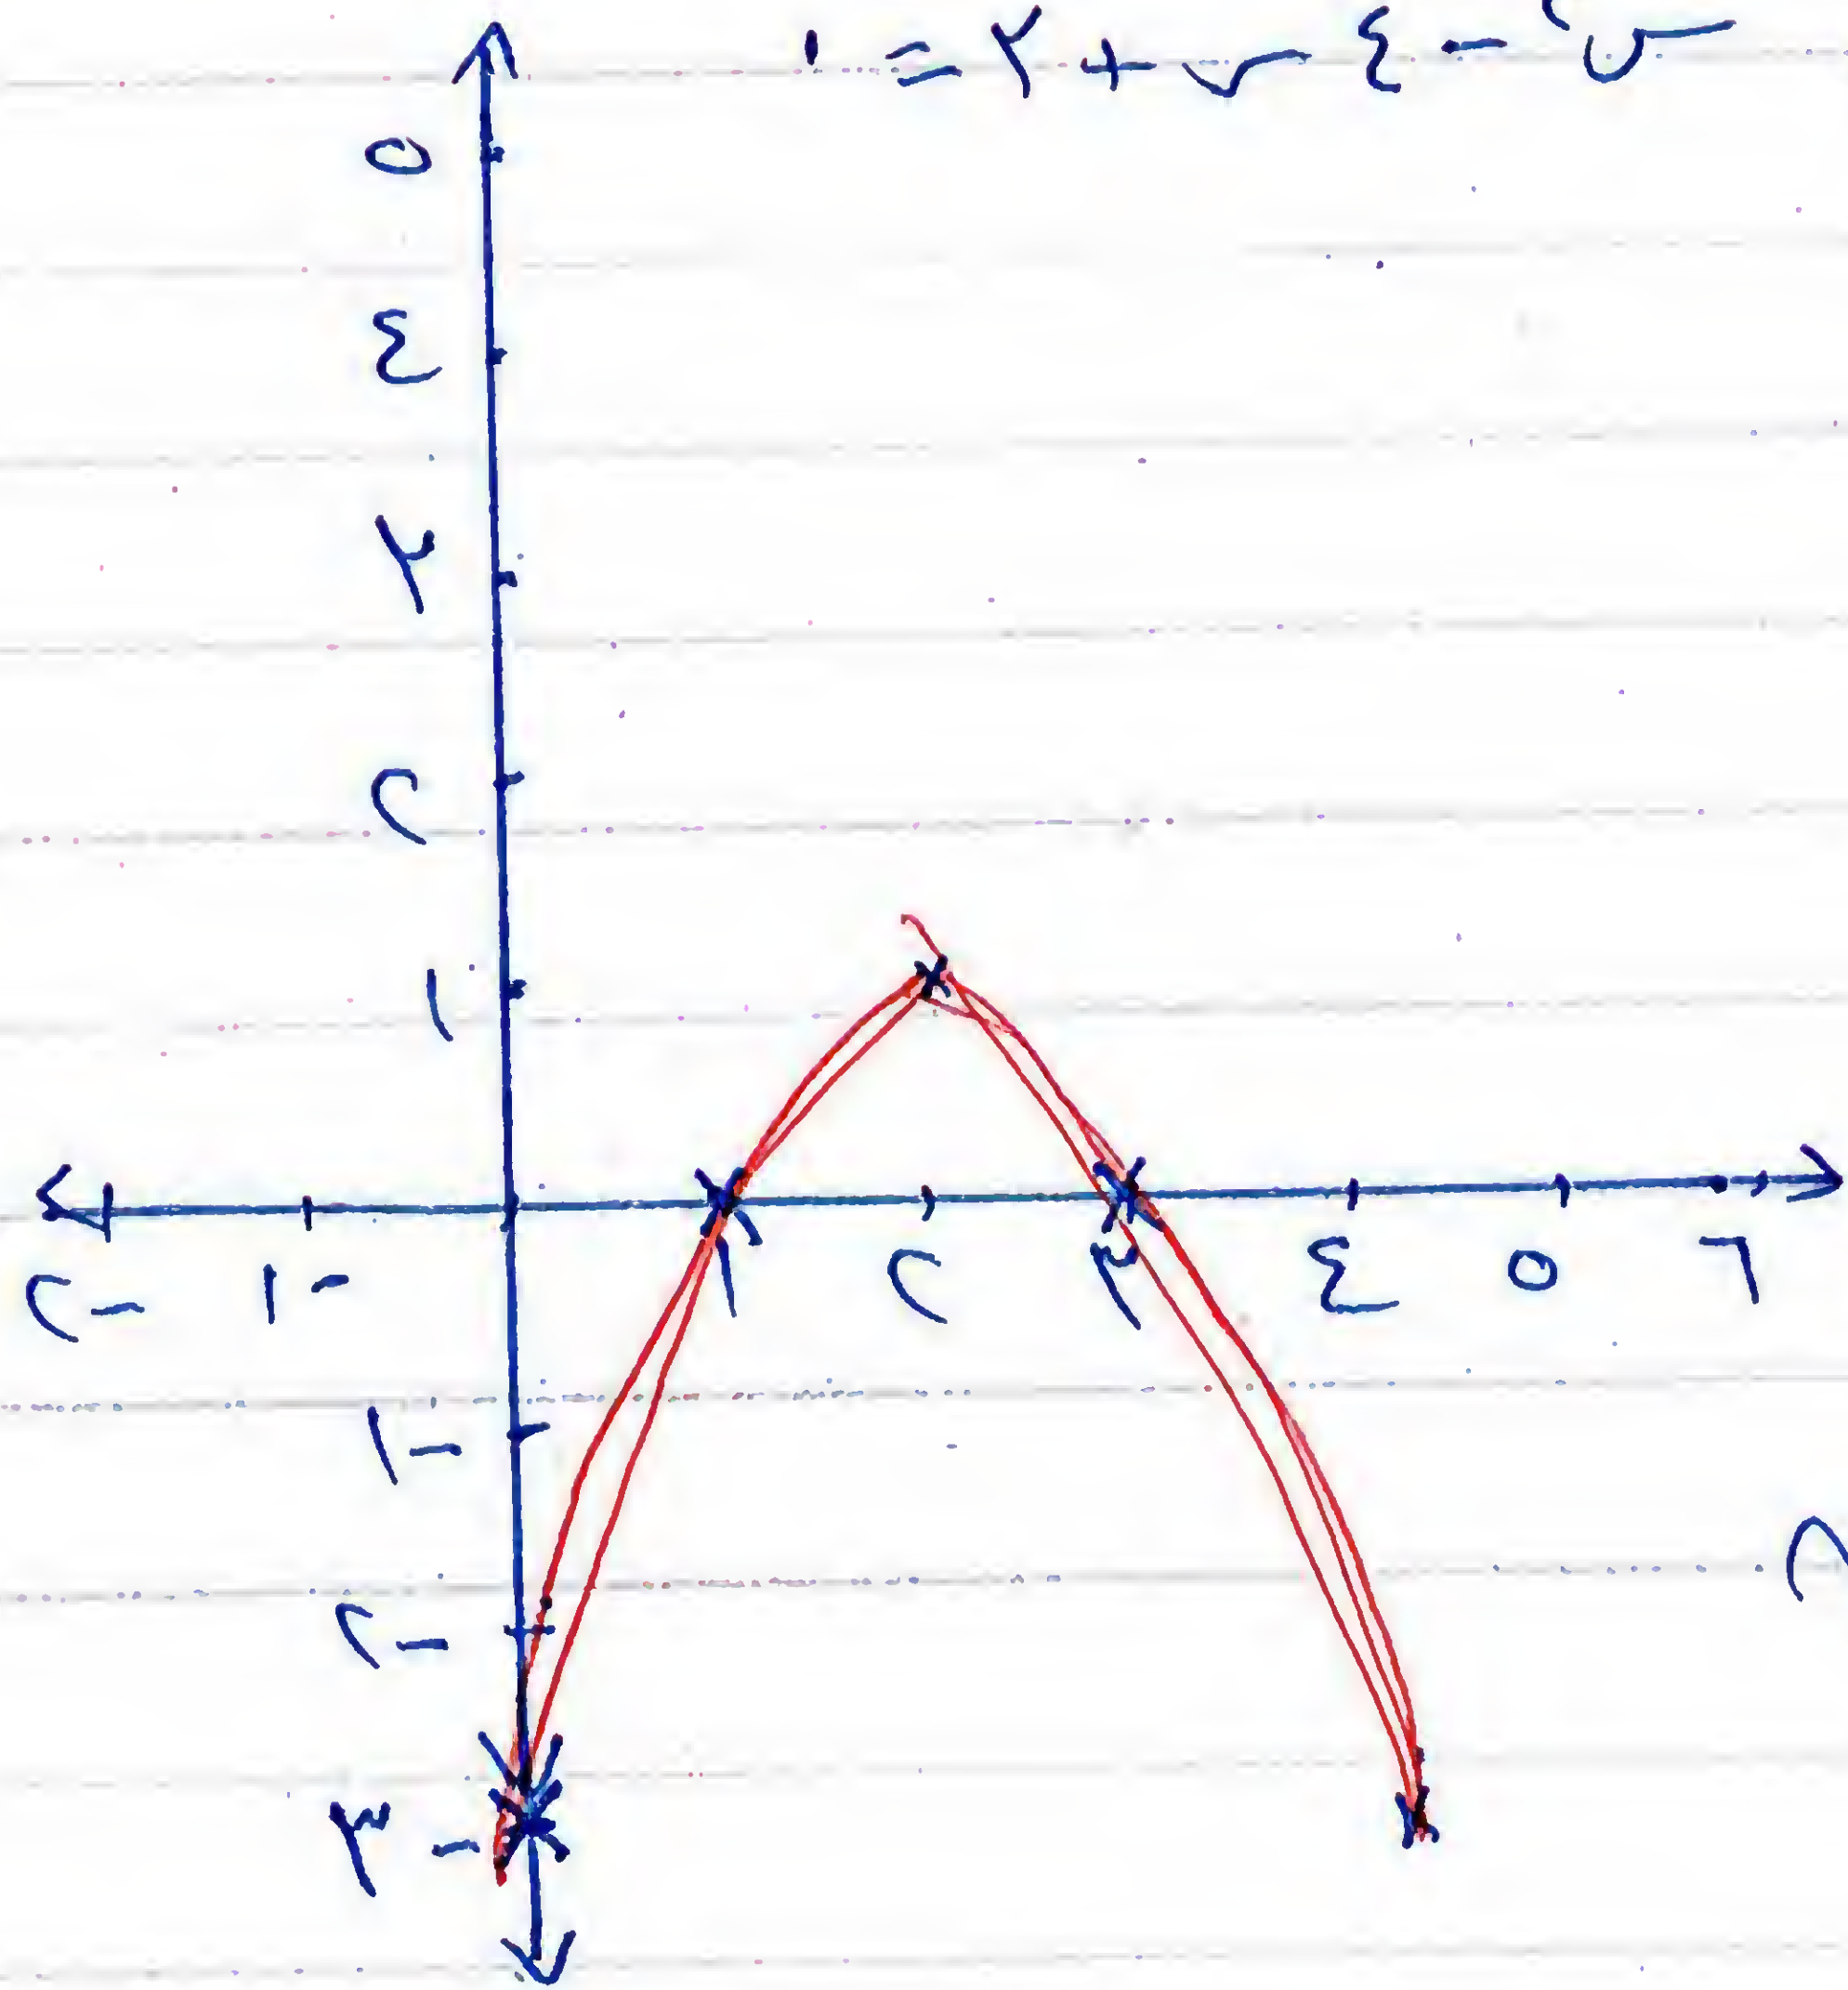 س² - ٤س + ٣ = ٠
٥
٤
٣
٢
١
-٢ -١ ١ ٢ ٣ ٤ ٥ ٦
-١
-٢
-٣